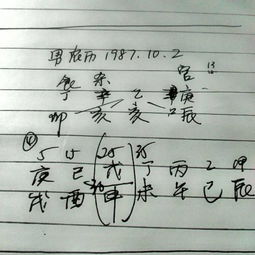 男 农历 1987.10.2
食 杀 官 13
丁 辛 乙 庚
卯 亥 亥 辰
④ 5 15 25 35
庚 己 戊 丁 丙 乙 甲
戌 酉 申 未 午 巳 辰